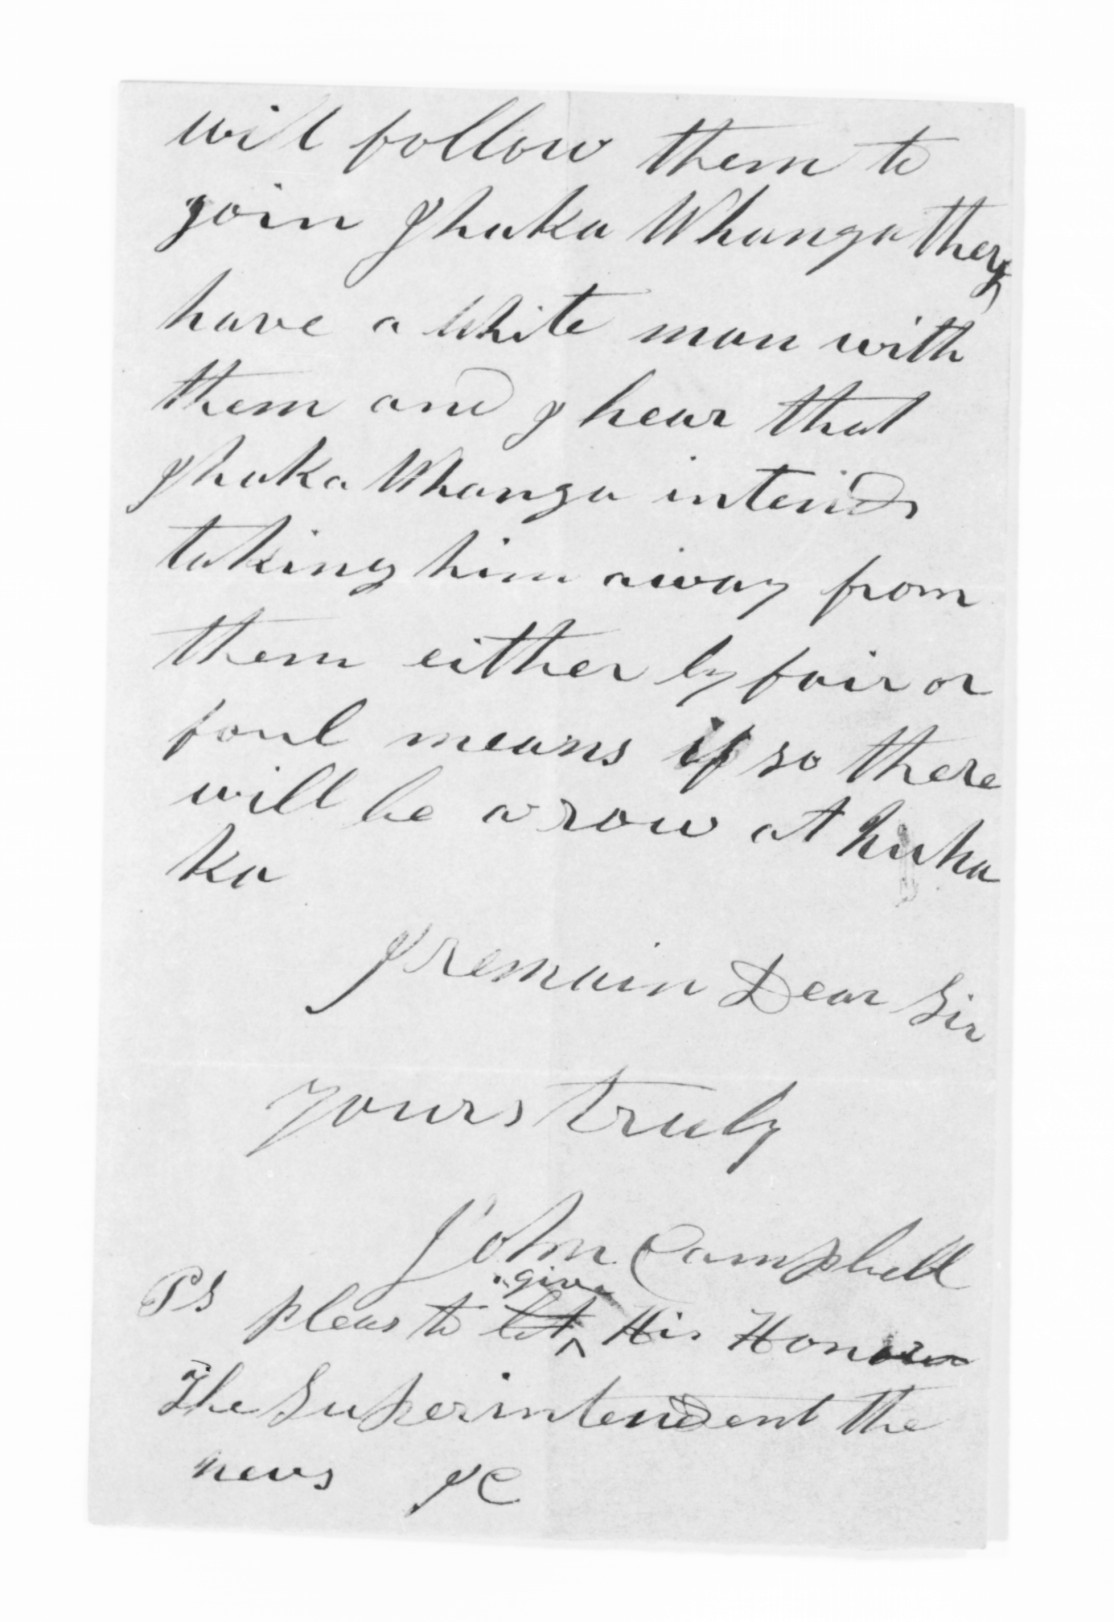 will follow them to
join Ihaka Whanga they
have a White man with
them and I hear that
Ihaka Whanga intends
taking him away from
them either by fair or
foul means if so there
will be a row at huha
ka
I remain Dear Sir
yours truly
John Campbell
PS pleas to let ^give His Honour
The Superintendent the
news JC